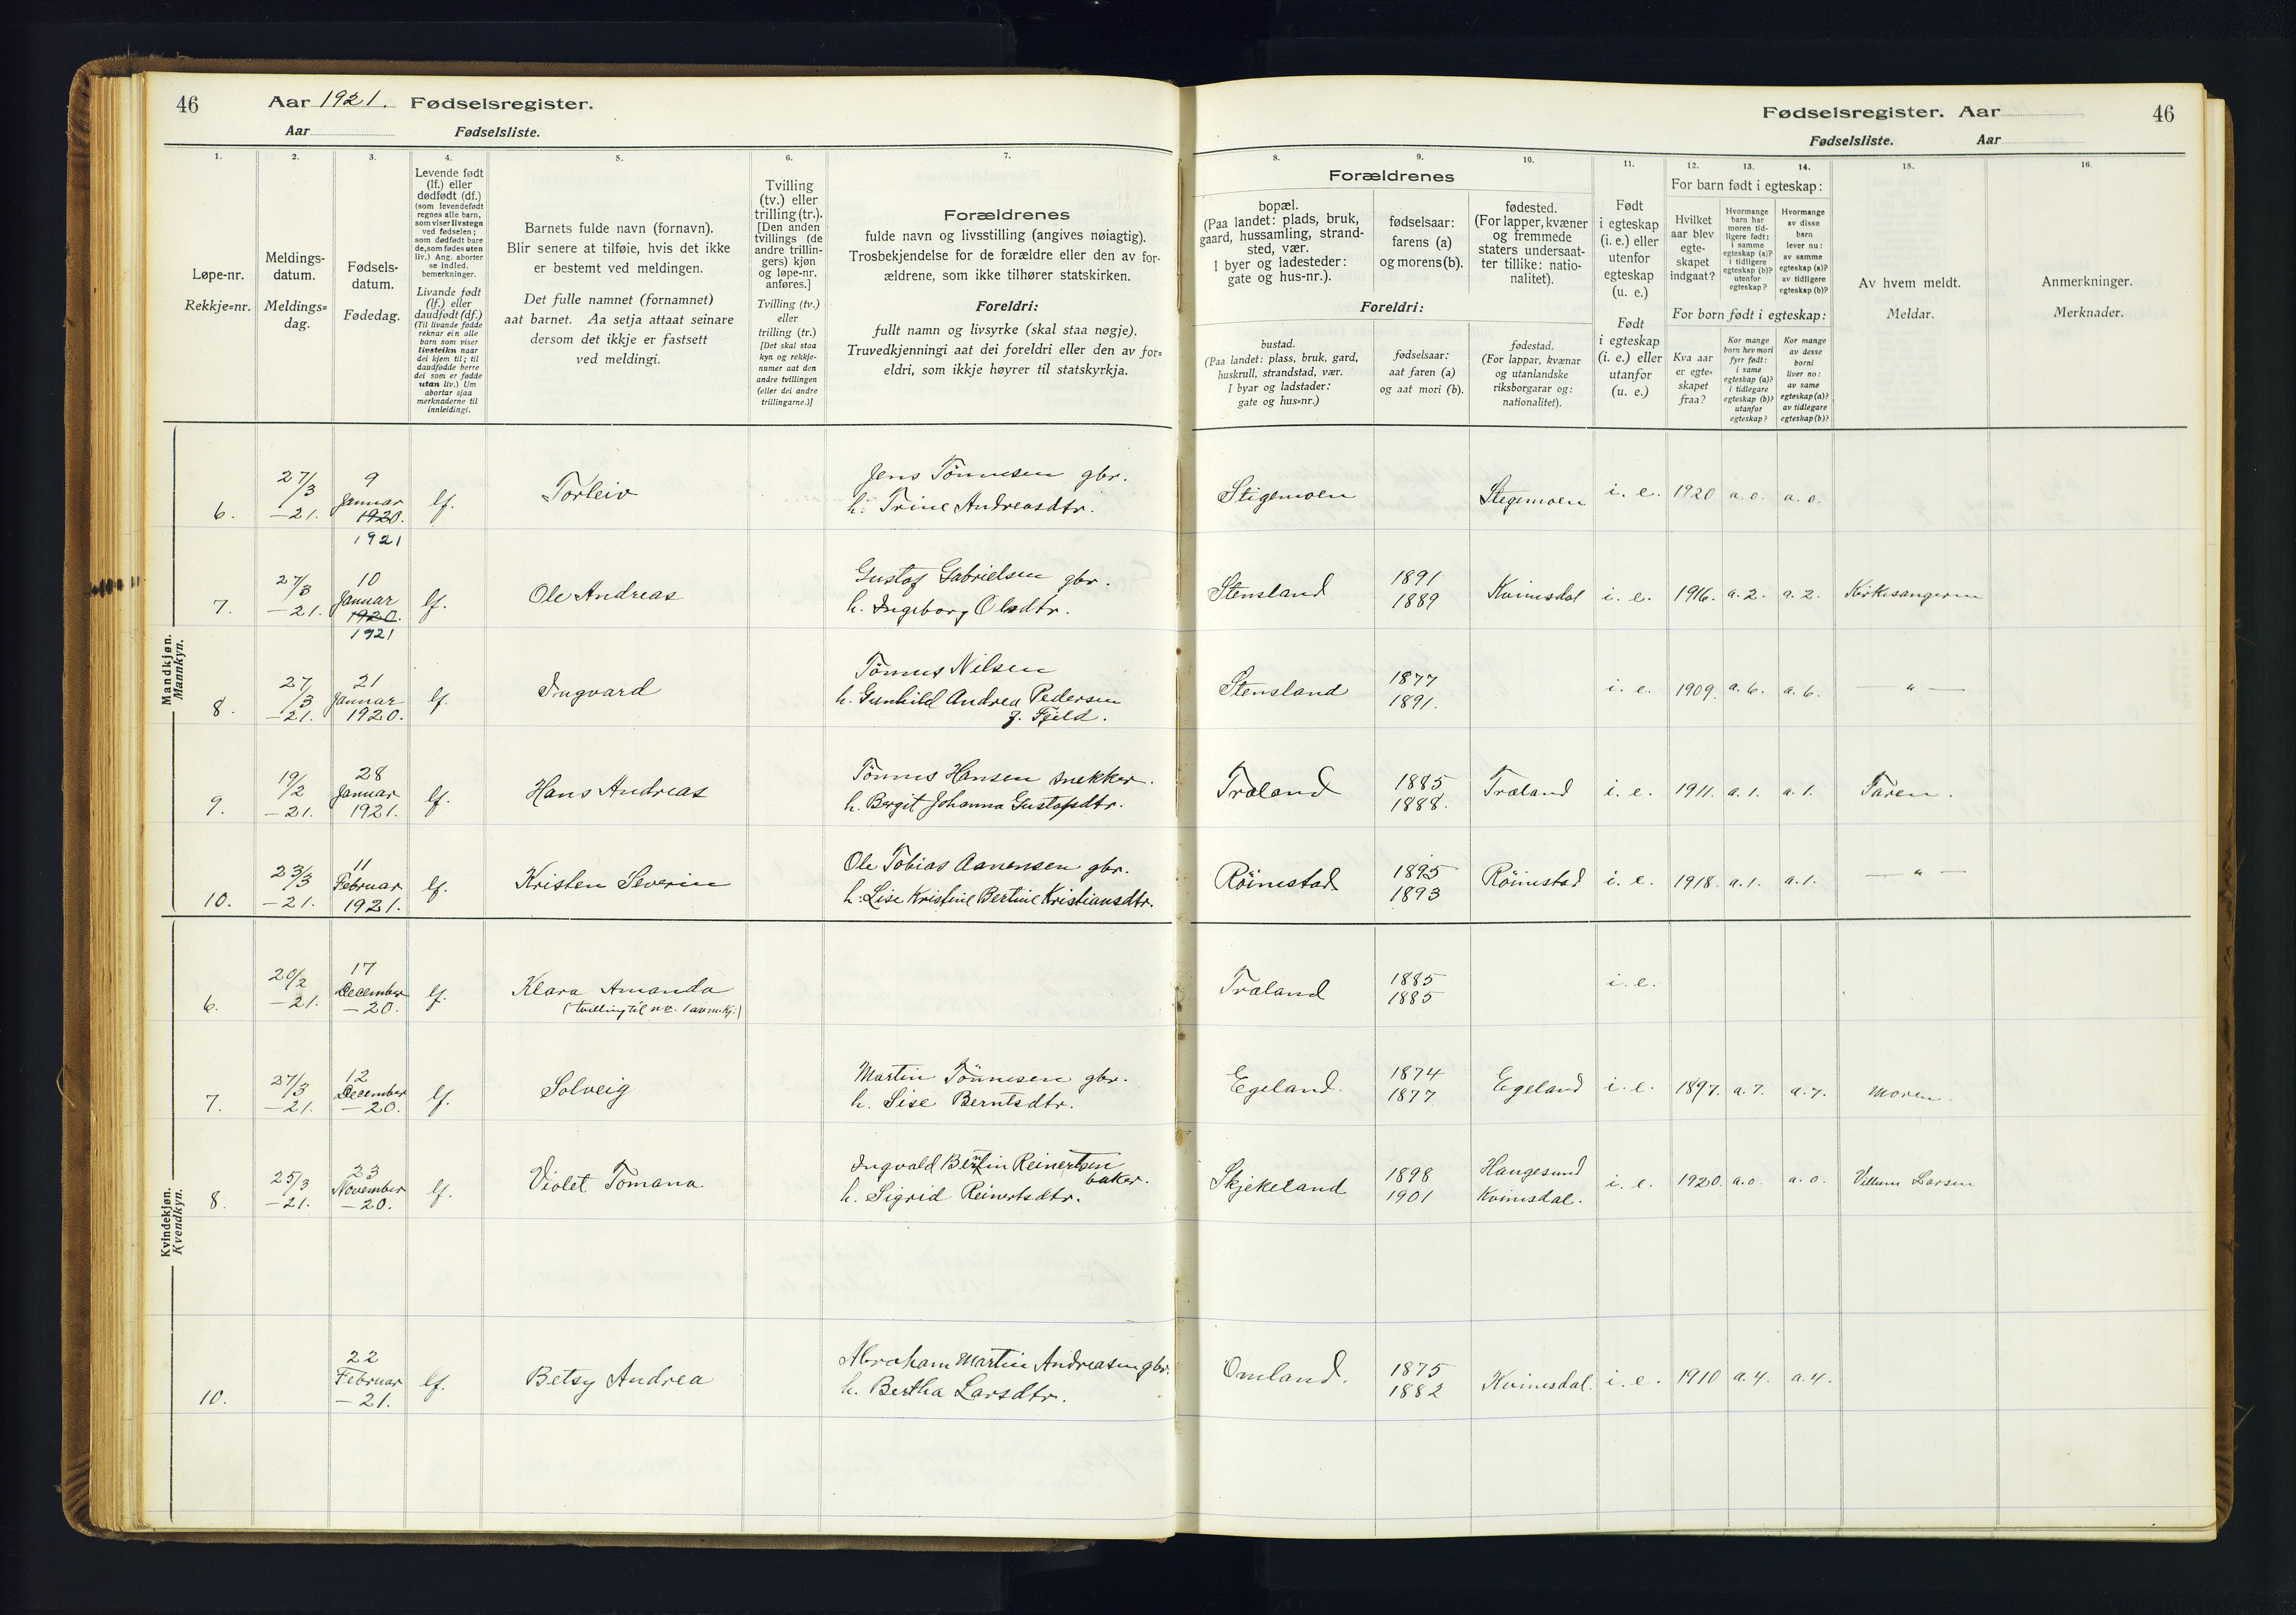 46
Aar 1921. Fødselsregister.
Aar Fødselsliste.
1.
2.
3.
4.
5.
6.
7.
Løpe-nr.
Rekkje=nr.
Meldings-
datum.
Meldings=
dag.
Fødsels-
datum.
Fødedag.
Levende født
(lf.) eller
dødfødt (df.)
(som levendefødt
regnes alle barn,
som viser livstegn
ved fødselen;
som dødfødt bare
de, som fødes uten
liv.) Ang. aborter
se indled.
bemerkninger.
Livande født
(lf.) eller
daudfødt (df.)
(Til livande fødde
reknar ein alle
barn som viser
livsteikn naar
dei kjem til; til
daudfødde berre
dei som er fødde
utan liv.) Um
abortar sjaa
merknaderne til
innleidingi.
Barnets fulde navn (fornavn).
Blir senere at tilføie, hvis det ikke
er bestemt ved meldingen.
Det fulle namnet (fornamnet)
aat barnet. Aa setja attaat seinare
dersom det ikkje er fastsett
ved meldingi.
Tvilling
(tv.) eller
trilling (tr.).
[Den anden
tvillings (de
andre trillin-
gers) kjøn
og løpe-nr.
anføres.]
Tvilling (tv.)
eller
trilling (tr.)
[Det skal staa
kyn og rekkje-
numer aat den
andre tvillingen
(eller dei andre
trillingarne.)]
Forældrenes
fulde navn og livsstilling (angives nøiagtig).
Trosbekjendelse for de forældre eller den av for-
ældrene, som ikke tilhører statskirken.
Foreldri:
fullt namn og livsyrke (skal staa nøgje).
Truvedkjenningi aat dei foreldri eller den av for=
eldri, som ikkje høyrer til statskyrkja.
Fødselsregister. Aar 46
Fødselsliste. Aar
8.
9.
10.
11.
12.
13.
14.
15.
16.
Forældrenes
bopæl.
(Paa landet: plads, bruk,
gaard, hussamling, strand-
sted, vær.
I byer og ladesteder:
gate og hus-nr.).
fødselsaar:
farens (a)
og morens (b).
fødested.
(For lapper, kvæner
og fremmede
staters undersaat-
ter tillike: natio-
nalitet).
Foreldri:
bustad.
(Paa landet: plass, bruk, gard,
huskrull, strandstad, vær.
I byar og ladstader:
gate og hus=nr.)
fødselsaar:
aat faren (a)
og aat mori (b).
fødestad.
(For lappar, kvænar
og utanlandske
riksborgarar og:
nationalitet).
Født
i egteskap
(i. e.) eller
utenfor
egteskap
(u. e.)
Født
i egteskap
(i. e.) eller
utanfor
(u. e.)
For barn født i egteskap:
Hvilket
aar blev
egte-
skapet
indgaat?
Hvormange
barn har
moren tid-
ligere født:
i samme
egteskap (a)?
i tidligere
egteskap (b)?
utenfor
egteskap?
Hvormange
av disse
barn
lever nu:
av samme
egteskap (a)?
av tidligere
egteskap (b)?
For born født i egteskap:
Kva aar
er egte-
skapet
fraa?
Kor mange
born hev mori
fyrr født:
i same
egteskap (a)?
i tidlegare
egteskap (b)?
utanfor
egteskap?
Kor mange
av desse
borni
liver no:
av same
egteskap (a)?
av tidlegare
egteskap (b)?
Av hvem meldt.
Meldar.
Anmerkninger.
Merknader.
Mandkjøn.
Mannkyn.
6. 27/3 -21. 9 Januar 1920. 1921 lf. Torleiv
Jens Tönnesen gbr.
h. Trine Andreasdtr.
Stigemoen Stegemoen i. e. 1920 a. o. a. o.
7. 27/3 -21. 10 Januar 1920. 1921 lf. Ole Andreas
Gustaf Gabrielsen gbr.
h. Ingeborg Olsdtr.
Stensland 1891 1889 Kvinesdal i. e. 1916. a. 2. a. 2. Kirkesangeren
8. 27/3 -21. 21 Januar 1920. lf. Ingvard
Tönnes Nilsen
h. Gunhild Andrea Pedersen
f. Fjeld.
Stensland 1877 1891. i. e. 1909. a. 6. a. 6. — " —
9. 19/2 -21. 28 Januar 1921. lf. Hans Andreas
Tönnes Hansen snekker.
h. Bergit Johanna Gustafsdtr.
Træland 1885 1888. Træland i. e. 1911. a. 1. a. 1. Faren.
10. 23/3 -21. 11 Februar 1921. lf. Kristen Severin
Ole Tobias Aanensen gbr.
h. Lise Kristine Bertine Kristiansdtr.
Röinestad 1895 1893 Röinestad i. e. 1918. a. 1. a. 1. — " —
Kvindekjøn.
Kvendkyn.
6. 20/2 -21. 17 December -20. lf. Klara Amanda
(tvilling til nr. 1 av m.kj.)
Træland 1885 1885 i. e.
7. 27/3 -21. 12 December -20. lf. Solveig
Martin Tönnesen gbr.
h. Sise Berntsdtr.
Egeland. 1874 1877 Egeland i. e. 1897. a. 7. a. 7. Moren.
8. 25/3 -21. 23 November -20. lf. Violet Tomana
Ingvald Berntin Reinertsen
baker.
h. Sigrid Reinertsdtr.
Skjekeland 1898 1901 Haugesund Kvinesdal. i. e. 1920. a. o. a. o. Villum Larsen
10. 22 Februar -21. lf. Betsy Andrea
Abraham Martin Andreasen gbr.
h. Bertha Larsdtr.
Omland. 1875 1882 Kvinesdal. i. e. 1910 a. 4. a. 4.